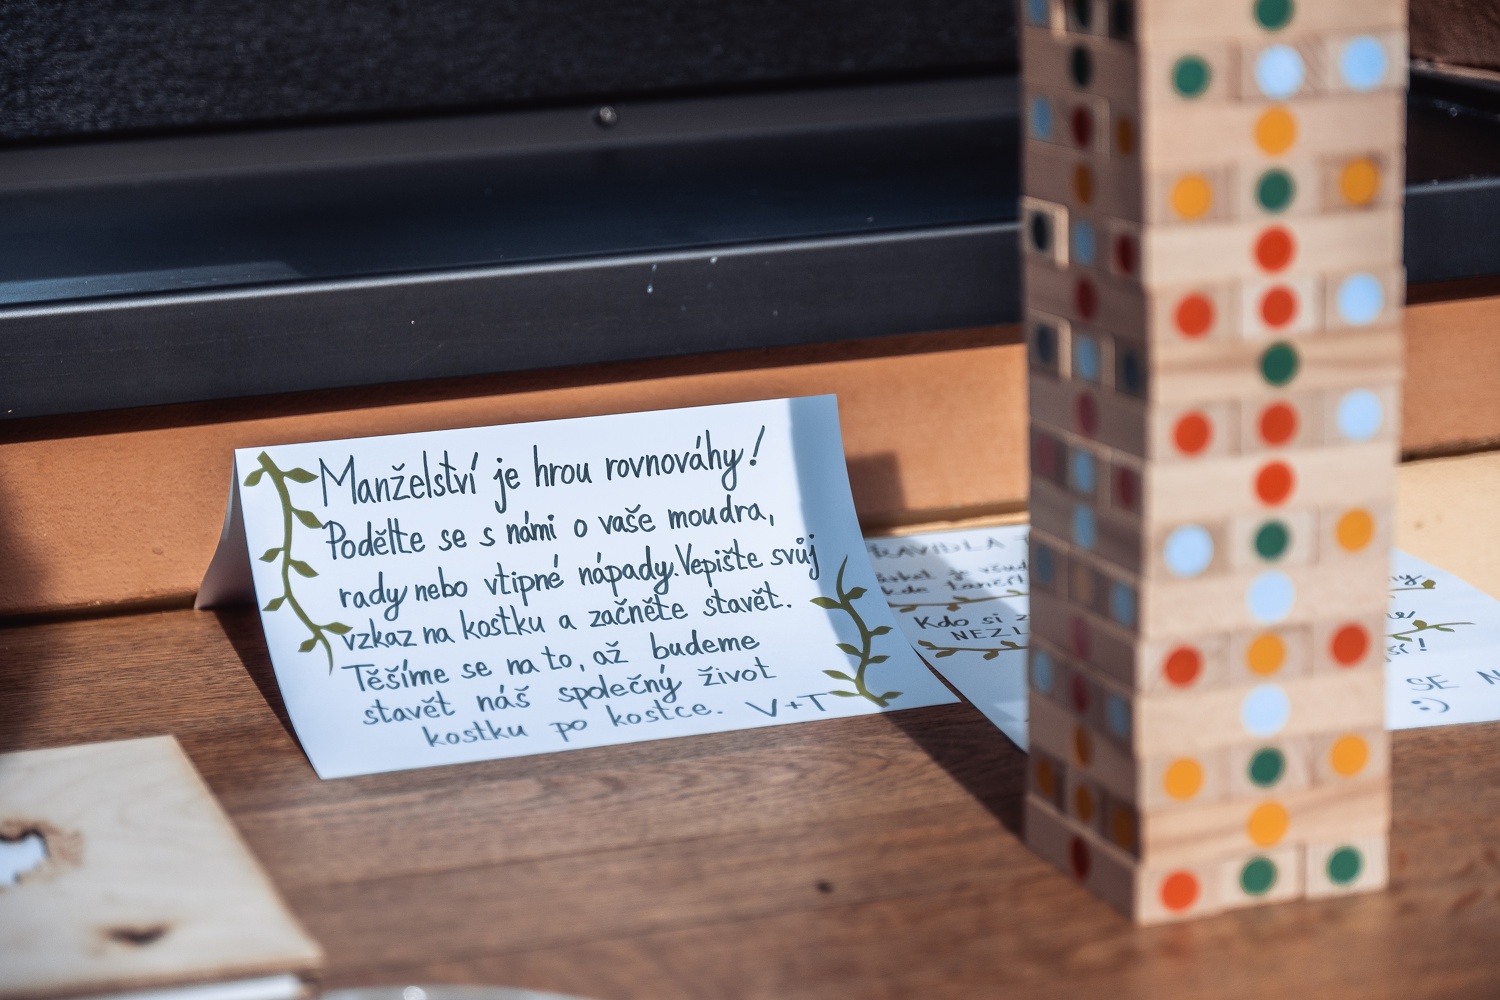 Manželství je hrou rovnováhy!
Podělte se s námi o vaše moudra,
rady nebo vtipné nápady. Vepište svůj
vzkaz na kostku a začněte stavět.
Těšíme se na to, až budeme
stavět náš společný život
kostku po kostce. V+T
Kdo si
SE